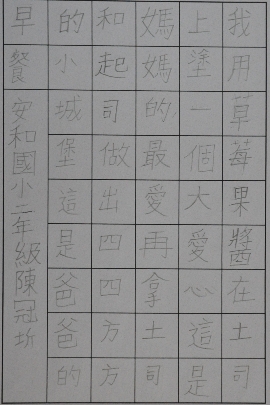 我用草莓果醬在土司
上塗一個大愛心這是
媽媽的最愛再拿土司
和起司做出四四方方
的小城堡這是爸爸的
早餐
安和國小二年級陳冠圻